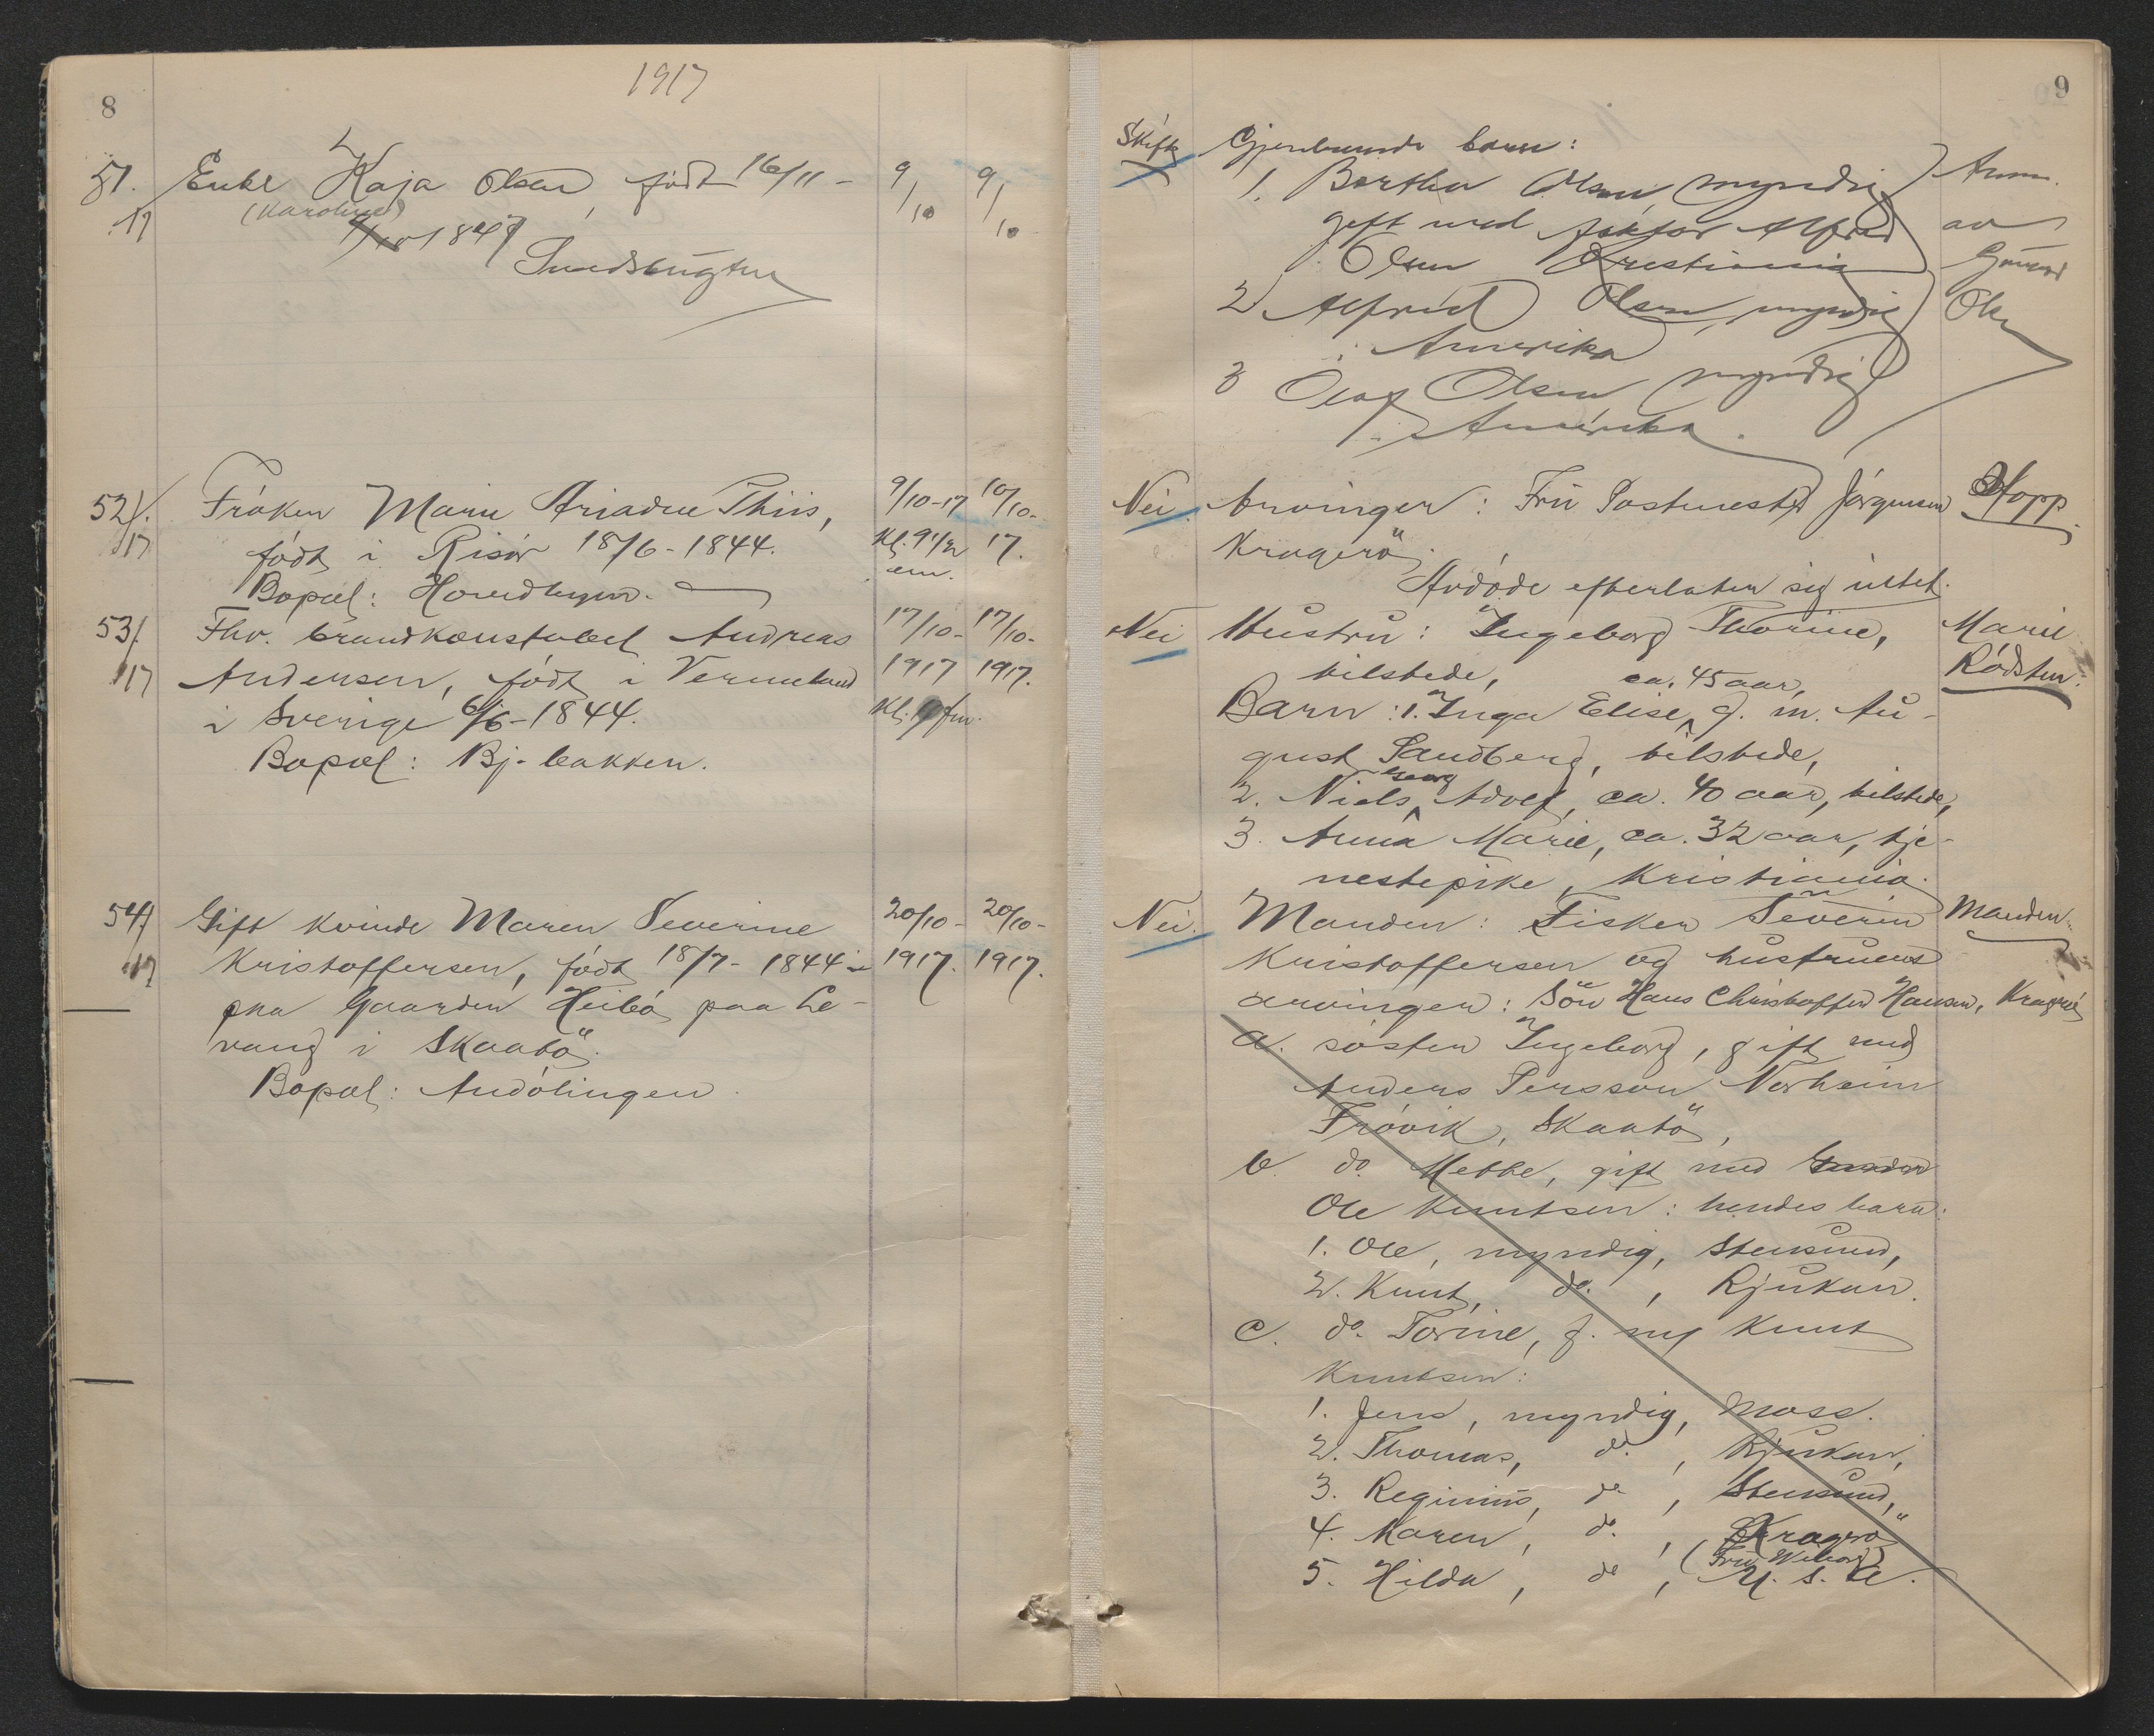 1917
8
51. Enke Kaja Olsen, født 16/11 - 9/10 9/10
17 (Karoline) 1847
Sundsbugten
52/. Frøken Marie Ariadne Thiis, 9/10-17 10/10-
17 født i Risør 18/6-1844. Kl. 9 1/2 17.
em.
Bopæl: Hovedbyen.
53/. Fhv. brandkonstabel Andreas 17/10- 17/10-
17 Andersen, født i Vermeland 1917 1917.
i Sverige 6/6-1844. Kl. fm.
Bopæl: Bj. bakken.
54/ Gift kvinde Maren Severine 20/10- 20/10-
17 Kristoffersen, født 18/7-1844 1917. 1917.
paa Gaarden Heibø paa Le-
vang i Skaatø.
Bopæl: Andølingen.
9
Skifte Gjenlevende barn: Anm.
1. Bertha Olsen, myndig av
gift med faktor Alfred
Olsen Kristiania
2 Alfred Olsen, myndig
i Amerika
3 Olaf Olsen myndig
i Amerika.
Nei. Arvinger: Fru Postmester Jørgensen Hopp.
Kragerø.
Avdøde efterlater sig intet.
Nei Hustru: Ingeborg Thorine, Marie
tilstede, ca. 45 aar, Rødsten.
Barn: 1. Inga Elise, g. m. Au-
gust Sandberg, tilstede,
2. Niels Georg Adolf, ca. 40 aar, tilstede,
3. Anna Marie, ca. 32 aar, tje-
nestepike, Kristiania.
Nei. Manden: Fisker Severin Manden.
Kristoffersen og hustruens
arvinger: Søn Hans Christoffer Hansen, Kragerø
a. søster Ingeborg, gift med
Anders Persson Norheim
Frøvik, Skaatø,
b. do. Mette, gift med
Ole Knutsen: hendes barn:
1. Ole, myndig, Stensund,
2. Knut, do., Rjukan.
c. do. Torine, g. m. Knut
Knutsen:
1. Jens, myndig, Moss.
2. Thomas, do., Rjukan,
3. Reginius, do, Stensund,
4. Karen, do., Kragerø
5. Hilda, do, (Fru Wiborg) U. S. A.